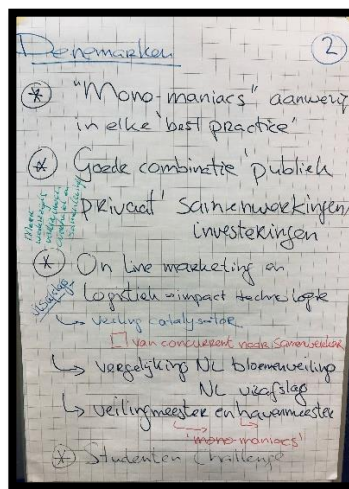 Denemarken
2
* "Mono-maniacs" aanwezig
in elke 'best practice'
* Goede combinatie 'publiek
privaat' samenwerkingen/
investeringen
* On line marketing en
logistiek = impact technologie
visafslag
↳ veiling catalysator
van concurrent naar samenwerker
↳ vergelijking NL bloemenveiling
NL visafslag
↳ veilingmeester en havenmeester
'mono-maniacs'
* Studenten Challenge